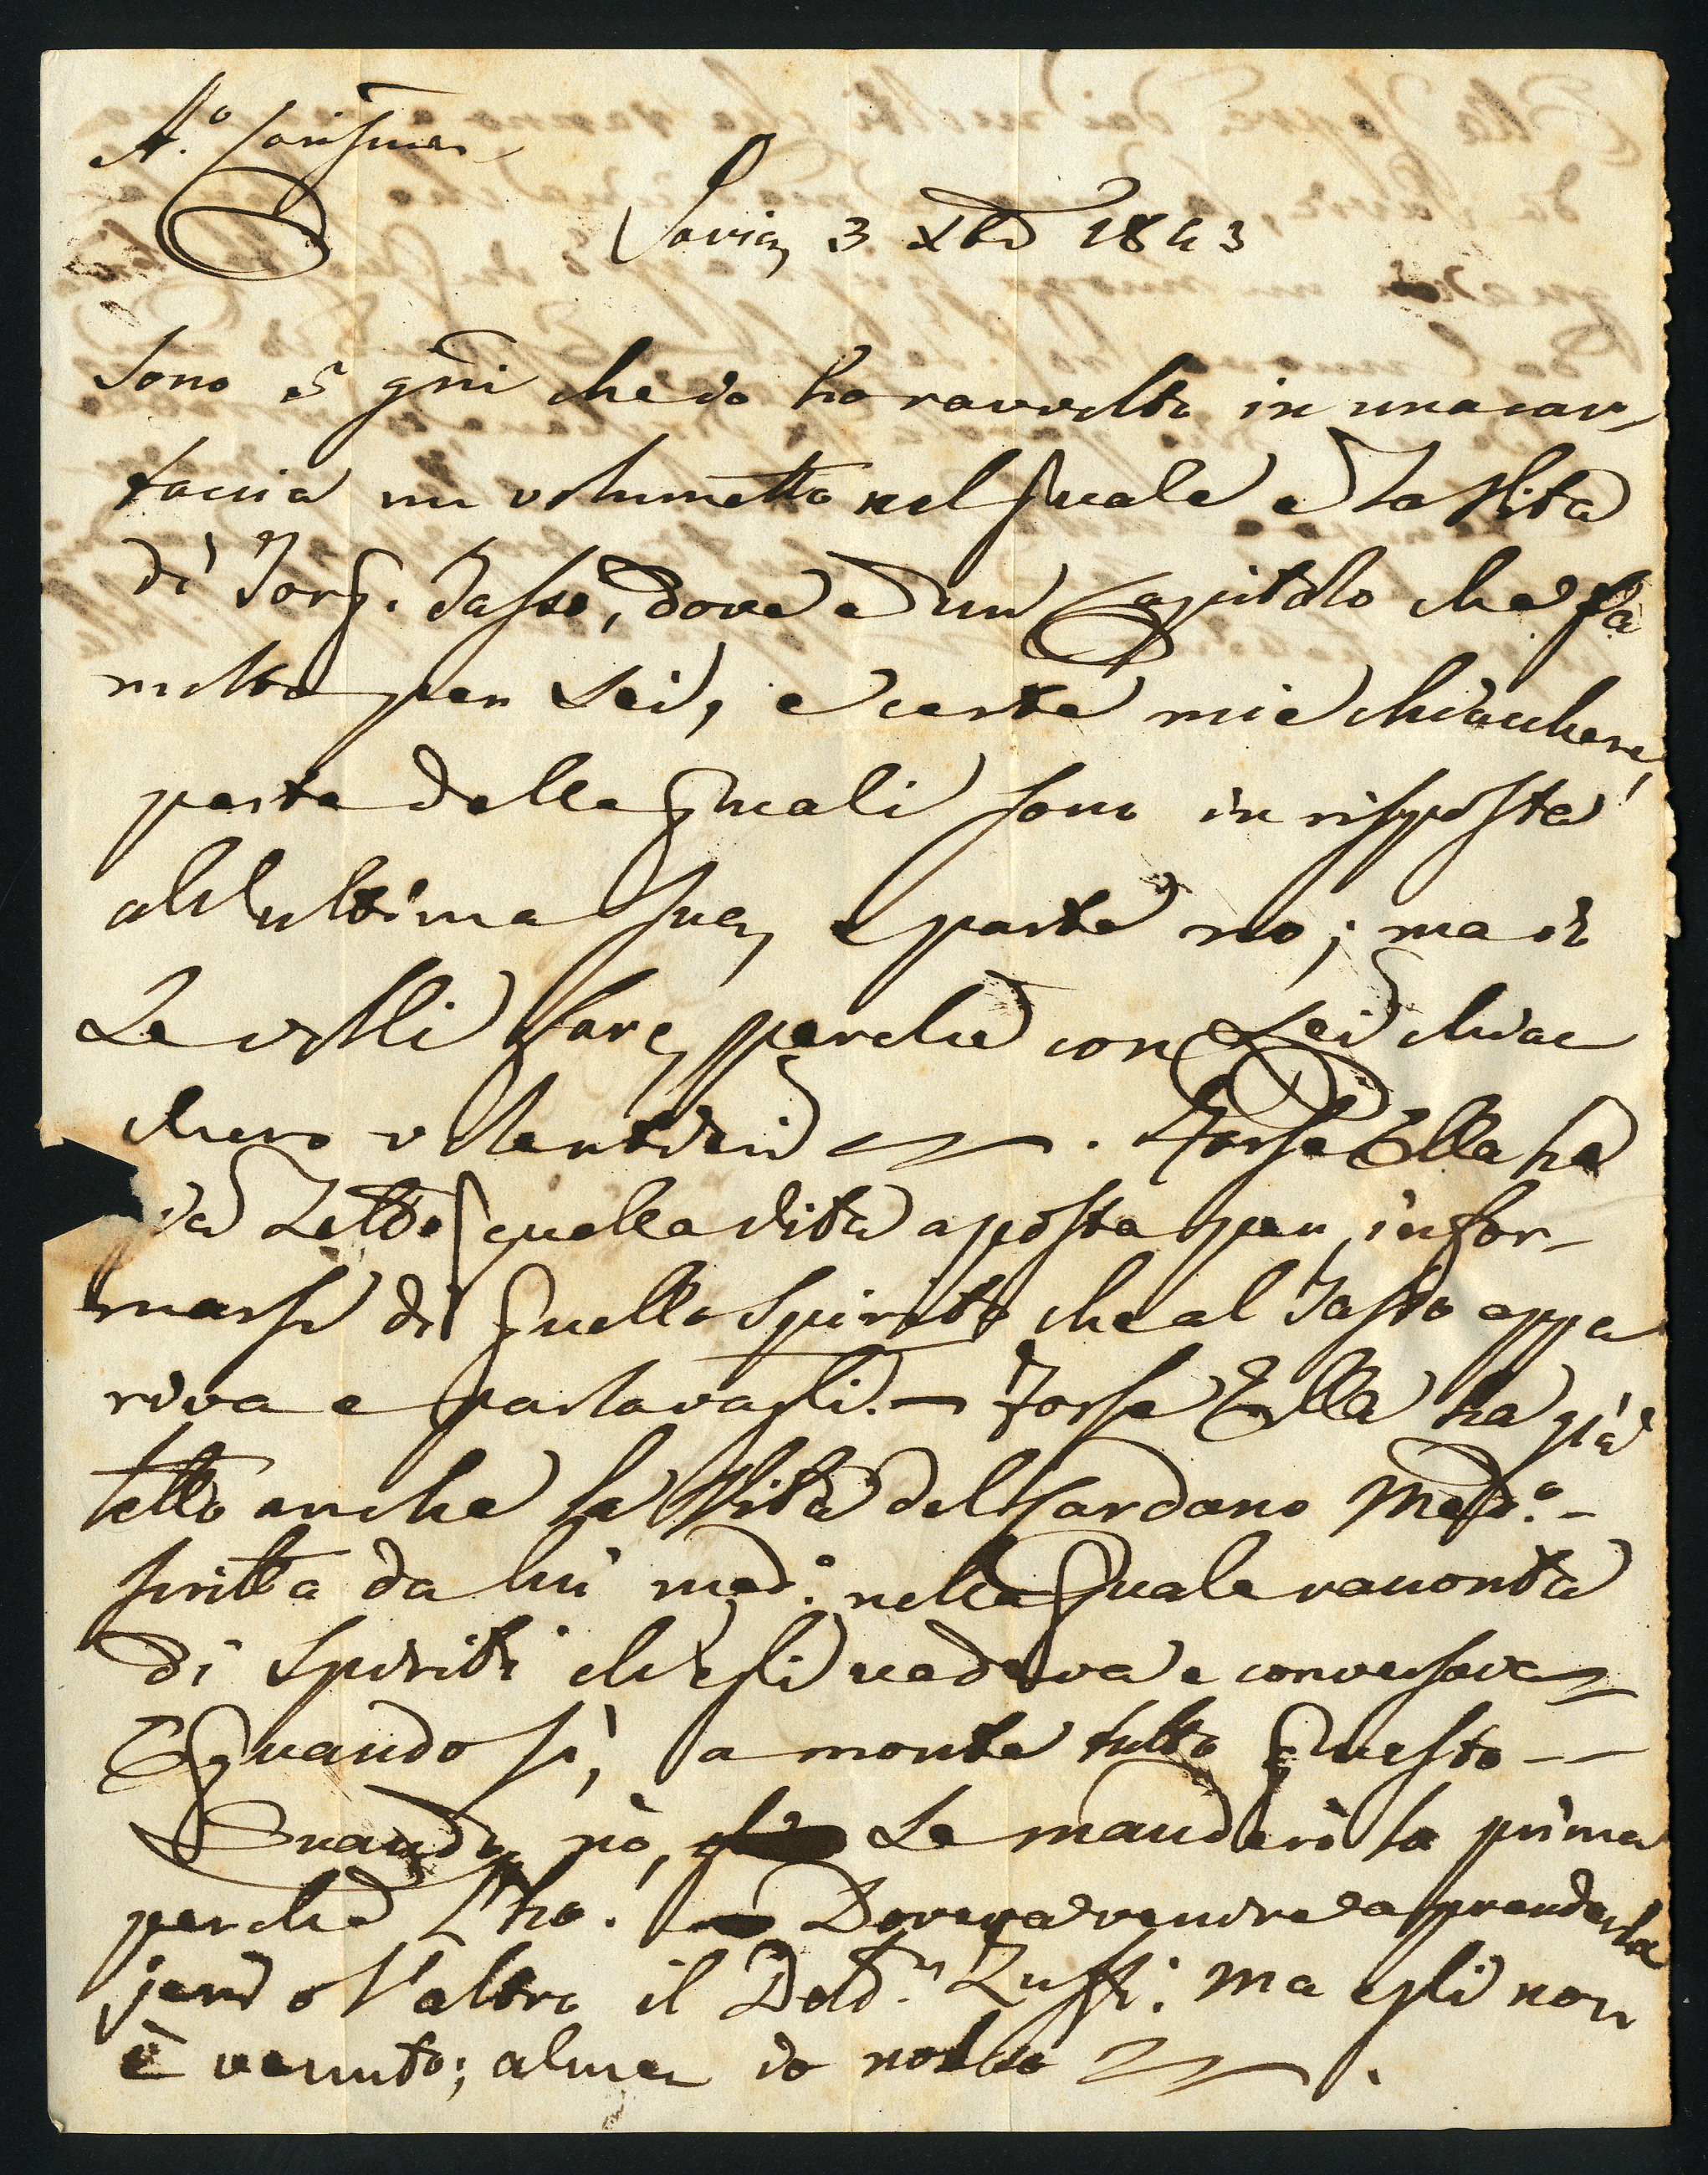 A.º Cariſmo
Pavia, 3 Xbre 1843
Sono 5 gni che io ho ravvolto in una car-
taccia un volumetto nel quale è la Vita
di Torq. Taſso, dove è un Capitolo che fa
molto per Lei, e certe mie chiacchere,
parte delle quali sono in risposta
all'ultima sua, e parte no; ma io
Le volli fare, perchè con Lei chiac
chero volentieri. Forse Ella ha
già Letto quella Vita aposta per infor-
marsi di quello Spirito che al Tasso appa
riva e parlavagli. — Forse Ella ha già
letto anche la Vita del Cardano Med.º -
scritta da lui med.º nella quale racconta
di Spiriti ch'egli vedeva e conversava
E quando sì, a monte tutto questo —
Quando nò, Le manderò la prima
perchè L'ho. Doveva venire a prenderla
jeri o l'altro il Dott.r Zuffi: ma egli non
è venuto; almen io nol so